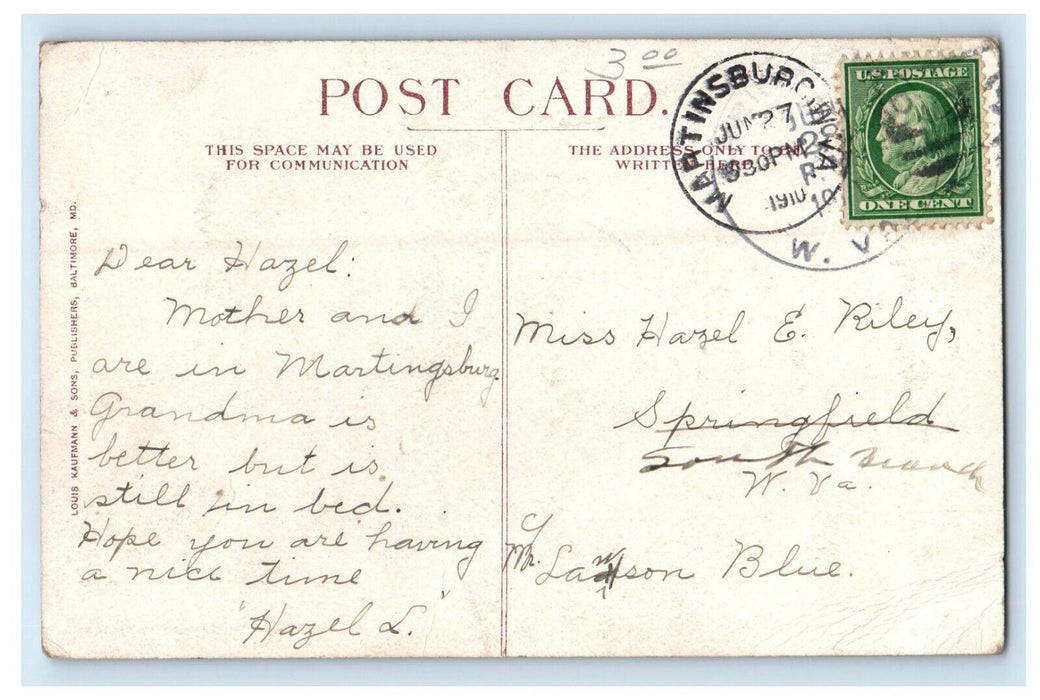 3.00
POST CARD.
THIS SPACE MAY BE USED
FOR COMMUNICATION
THE ADDRESS ONLY TO BE
WRITTEN HERE
MARTINSBURG
W. VA
JUN 27
530PM
1910
W. VA
U.S. POSTAGE
ONE CENT
LOUIS KAUFMANN & SONS, PUBLISHERS, BALTIMORE, MD.
Dear Hazel:
Mother and I
are in Martingsburg
Grandma is
better but is
still in bed.
Hope you are having
a nice time
"Hazel L."
Miss Hazel E. Riley,
Springfield
South Branch
W. Va.
c/
Mr. Lawson Blue.